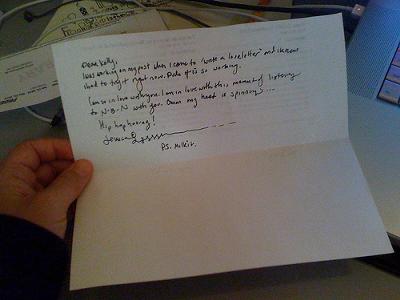 Dear Kelly,
I was working on my post when I came to "write a love letter" and I knew
I had to try it right now. Dude it is so working.
I am so in love with you. I am in love with this moment of listening
to N.B.N with you. Damn my head is spinning...
Hip hop hooray!
P.S. Milkit.